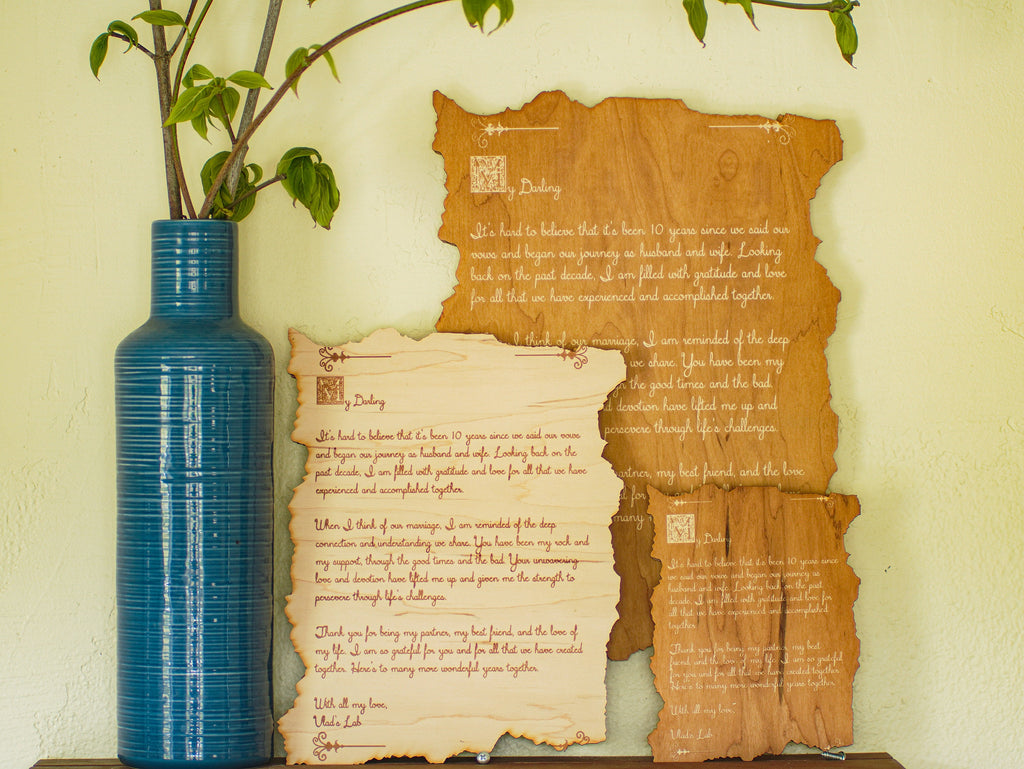 My Darling
It's hard to believe that it's been 10 years since we said our
vows and began our journey as husband and wife. Looking
back on the past decade, I am filled with gratitude and love
for all that we have experienced and accomplished together.
I think of our marriage, I am reminded of the deep
we share. You have been my
the good times and the bad.
devotion have lifted me up and
persevere through life's challenges.
partner, my best friend, and the love
for
many
My Darling
It's hard to believe that it's been 10 years since we said our vows
and began our journey as husband and wife. Looking back on the
past decade, I am filled with gratitude and love for all that we have
experienced and accomplished together.
When I think of our marriage, I am reminded of the deep
connection and understanding we share. You have been my rock and
my support, through the good times and the bad. Your unwavering
love and devotion have lifted me up and given me the strength to
persevere through life's challenges.
Thank you for being my partner, my best friend, and the love of
my life. I am so grateful for you and for all that we have created
together. Here's to many more wonderful years together.
With all my love,
Vlad's Lab
My Darling
It's hard to believe that it's been 10 years since
we said our vows and began our journey as
husband and wife. Looking back on the past
decade, I am filled with gratitude and love for
all that we have experienced and accomplished
together.
Thank you for being my partner, my best
friend, and the love of my life. I am so grateful
for you and for all that we have created together.
Here's to many more wonderful years together.
With all my love,
Vlad's Lab